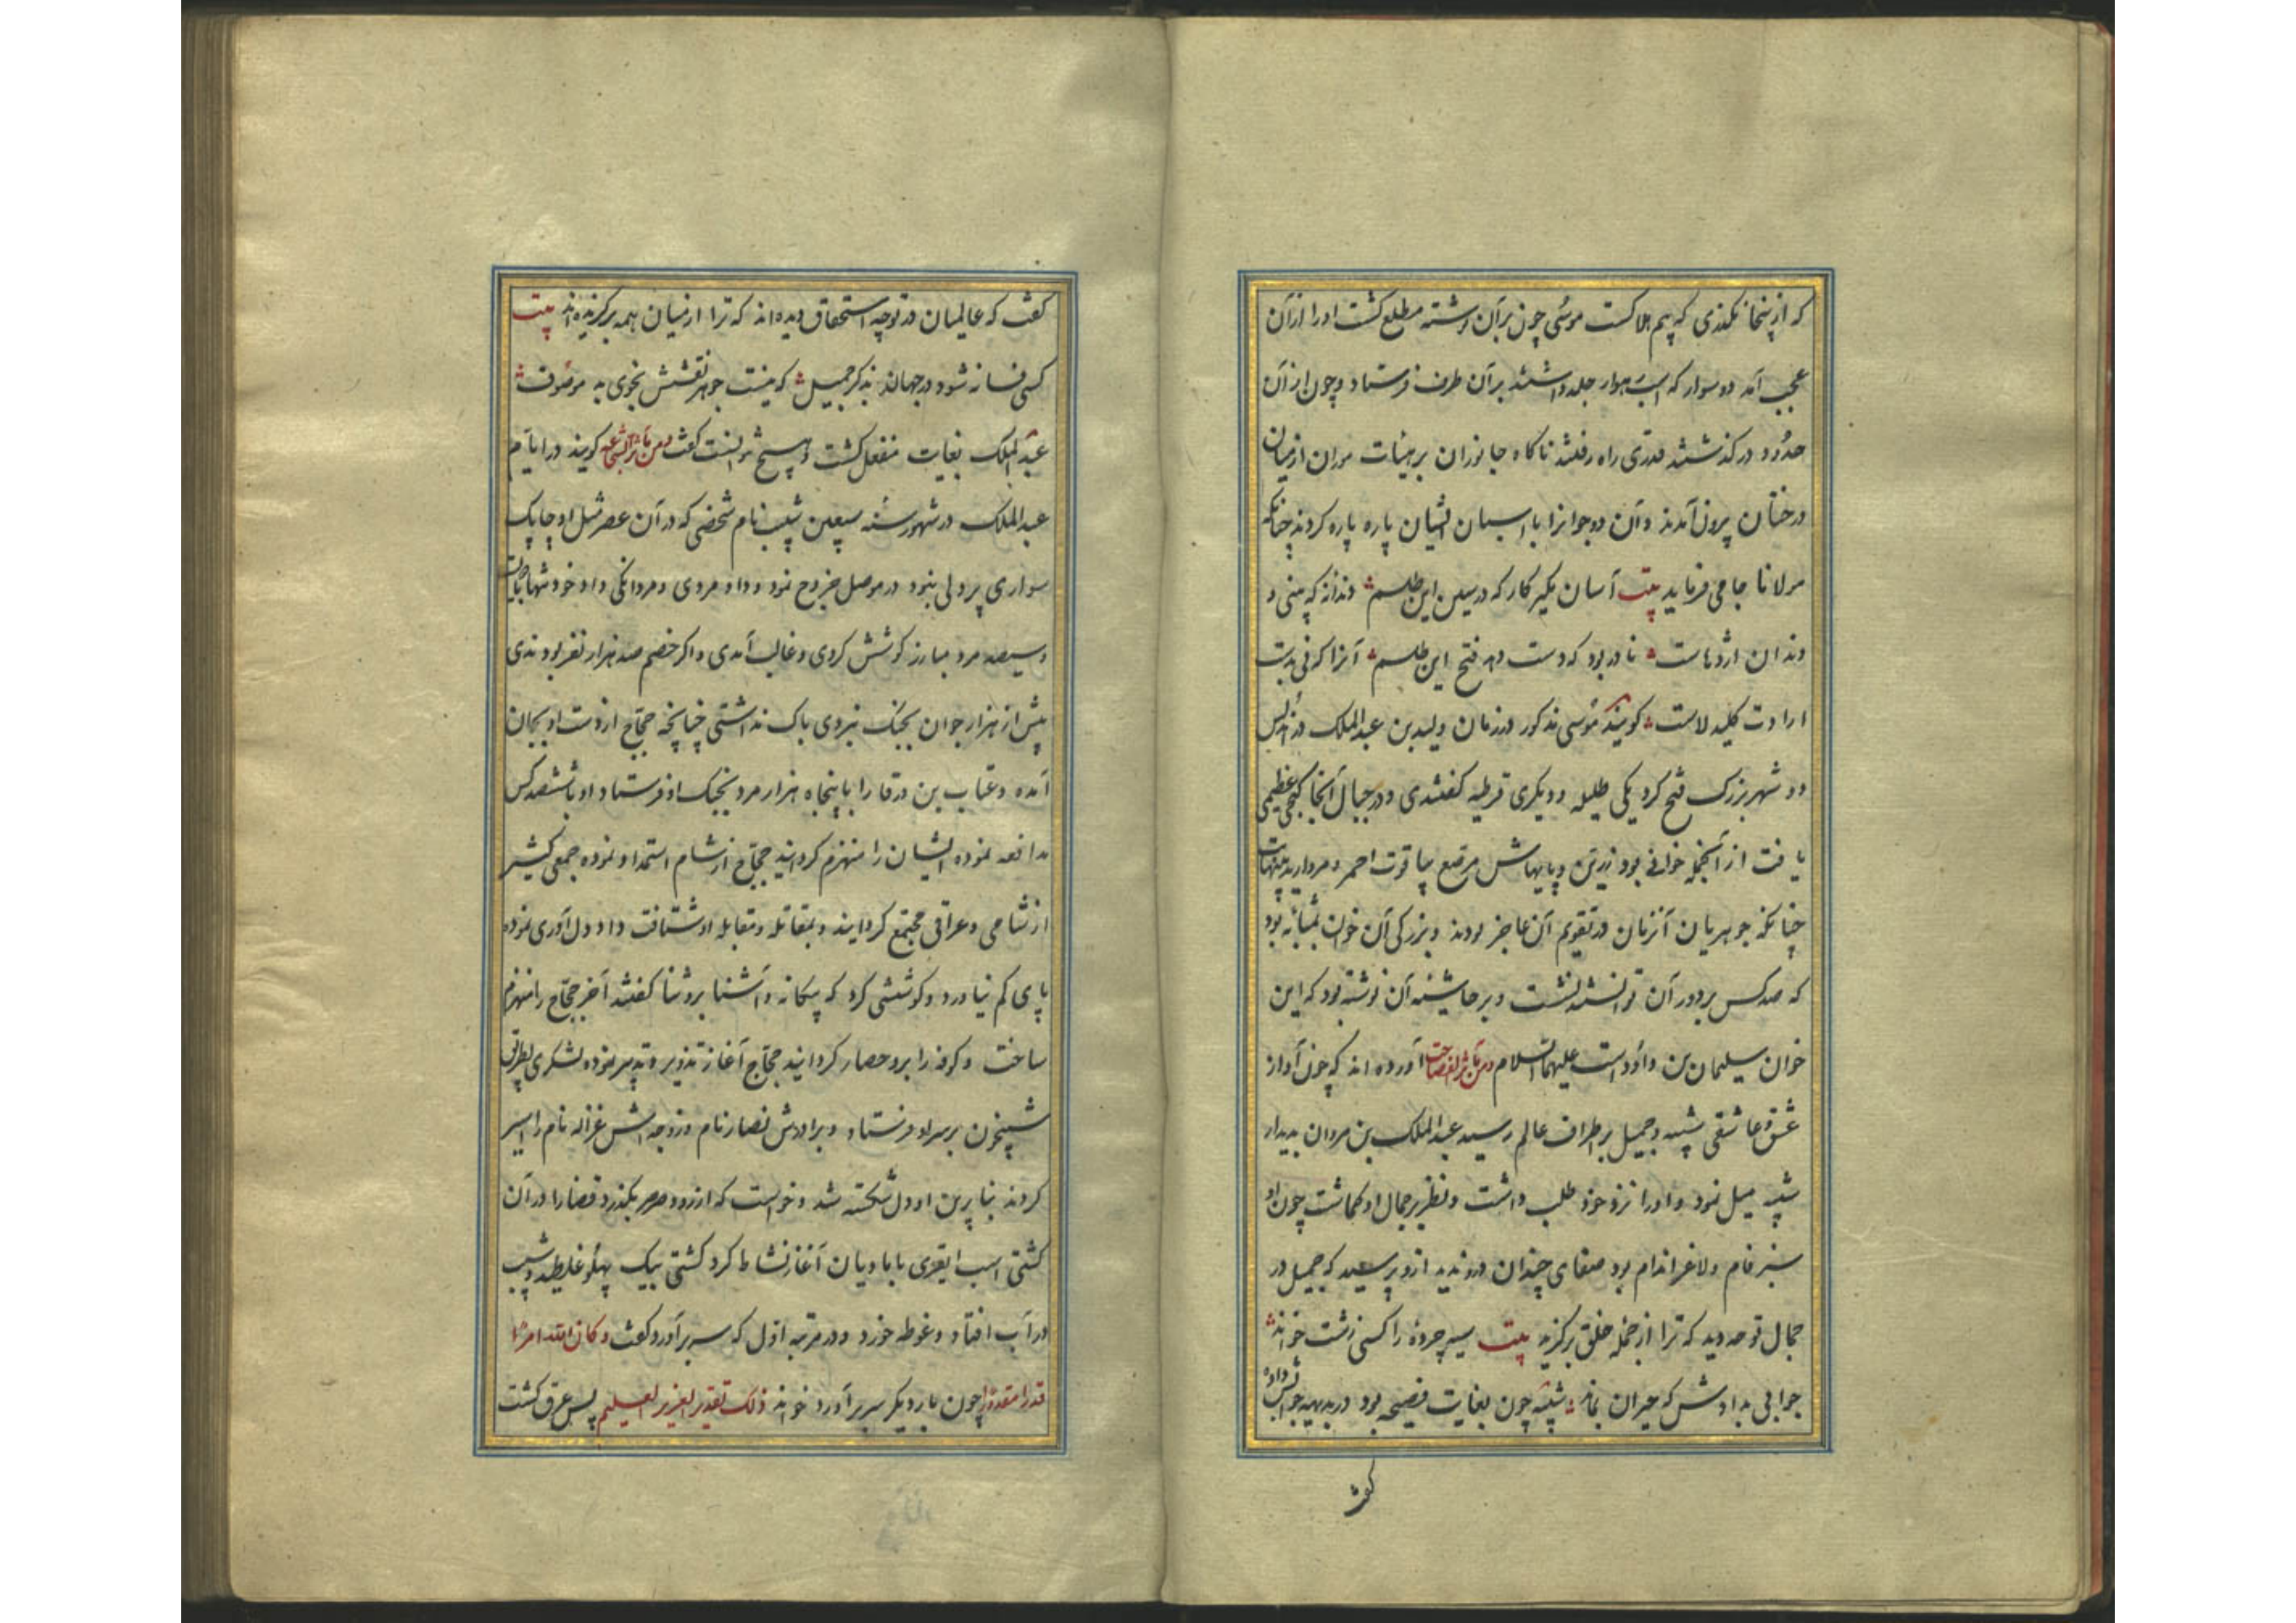 که ازینجا نگذری که بیم هلاکست موسی چون برآن نوشته مطلع کشت اورا ازآن
عجب آمد دو سوار که اسب هوار جلد داشتند برآن طرف فرستاد و چون ازآن
حدود درگذشتند قدری راه رفتند ناکاه جانوران بر هیئات موران ازمیان
درختان بیرون آمدند و آن دو جوانرا با اسبان ایشان پاره پاره کردند چنانکه
مولانا جامی فرماید بیت آسان مگیر کار که درسین این طلسم دندانه که بینی و
دندان اژدهاست نادر بود که دست دهد فتح این طلسم آنرا که نی بدست
ارادت کلید لاست کویند موسی مذکور درزمان ولید بن عبدالملک در اندلس
دو شهر بزرک فتح کرد یکی طلیله و دیکری قرطیه کفتندی و در جبال آنجا کنجی عظیمی
یافت از آنجمله خوانی بود زرین و پایهاش مرصع بیاقوت احمر و مروارید
چنانکه جوهریان آنزمان در تقویم آن عاجز بودند و بزرکی آن خوان بمثابه بود
که صد کس بر دور آن توانستند نشست و بر حاشیه آن نوشته بود که این
خوان سلیمان بن داود است علیهما السلام ومن مآثر الفصاحت آورده اند که چون آواز
عشق و عاشقی بثینه و جمیل بر اطراف عالم رسید عبدالملک بن مروان بدیدار
بثینه میل نمود و اورا نزد خود طلب داشت و نظر بر جمال او کماشت چون او
سبز فام و لاغر اندام بود صفای چندان درو ندید ازو پرسید که جمیل در
جمال تو چه دید که ترا از جمله خلق برکزید بیت سیه چرده را کسی زشت خواند
جوابی بدادش که حیران بماند بثینه چون بغایت فصیحه بود در بدیهه جوابش داده
کفت
کفت که عالمیان در تو چه استحقاق دیده اند که ترا ازمیان همه برکزیده اند بیت
کسی فسانه شود در جهان بذکر جمیل که نیست جوهر نفسش بخوی بد موصوف
عبدالملک بغایت منفعل کشت و هیچ نتوانست کفت ومن مآثر الشجاعه کویند در ایام
عبدالملک در شهور سنه سبعین شبیب نام شخصی که در آن عصر مثل او چابک
سواری پر دلی نبود در موصل خروج نمود و داد مردی و مردانکی داد و خود تنها با دویست
و سیصد مرد مبارز کوشش کردی و غالب آمدی و اکر خصم صد هزار نفر بودندی
بیش از هزار جوان بجنک نبردی باک نداشتی چنانچه حجاج ازدست او بجان
آمده و عتاب بن ورقا را با پنجاه هزار مرد بجنک او فرستاد او با ششصد کس
مدافعه نموده ایشان را منهزم کردانید حجاج از شام استمداد نموده جمعی کثیر
از شامی و عراقی مجتمع کردانید و بمقاتله و مقابله او شتافت داد دل آوری نموده
پای کم نیاورد و کوششی کرد که بیکانه و آشنا برو ثنا کفتند آخر حجاج را منهزم
ساخت و کوفه را برو حصار کردانید حجاج آغاز تذویر و تدبیر نموده لشکری بطریق
شبیخون بر سر او فرستاد و برادرش نصار نام و زوجه اش غزاله نام را اسیر
کردند بنابرین او دل شکسته شد و خواست که از رود صرصر بکذرد قضارا در آن
کشتی اسب ایغری با مادیان آغاز نشاط کرد کشتی بیک پهلو غلطید و شبیب
در آب افتاد و غوطه خورد و در مرتبه اول که سر برآورد کفت و کان الله امرا
قدرا مقدورا چون بار دیکر سر برآورد خواند ذلک تقدیر العزیز العلیم پس غرق کشت